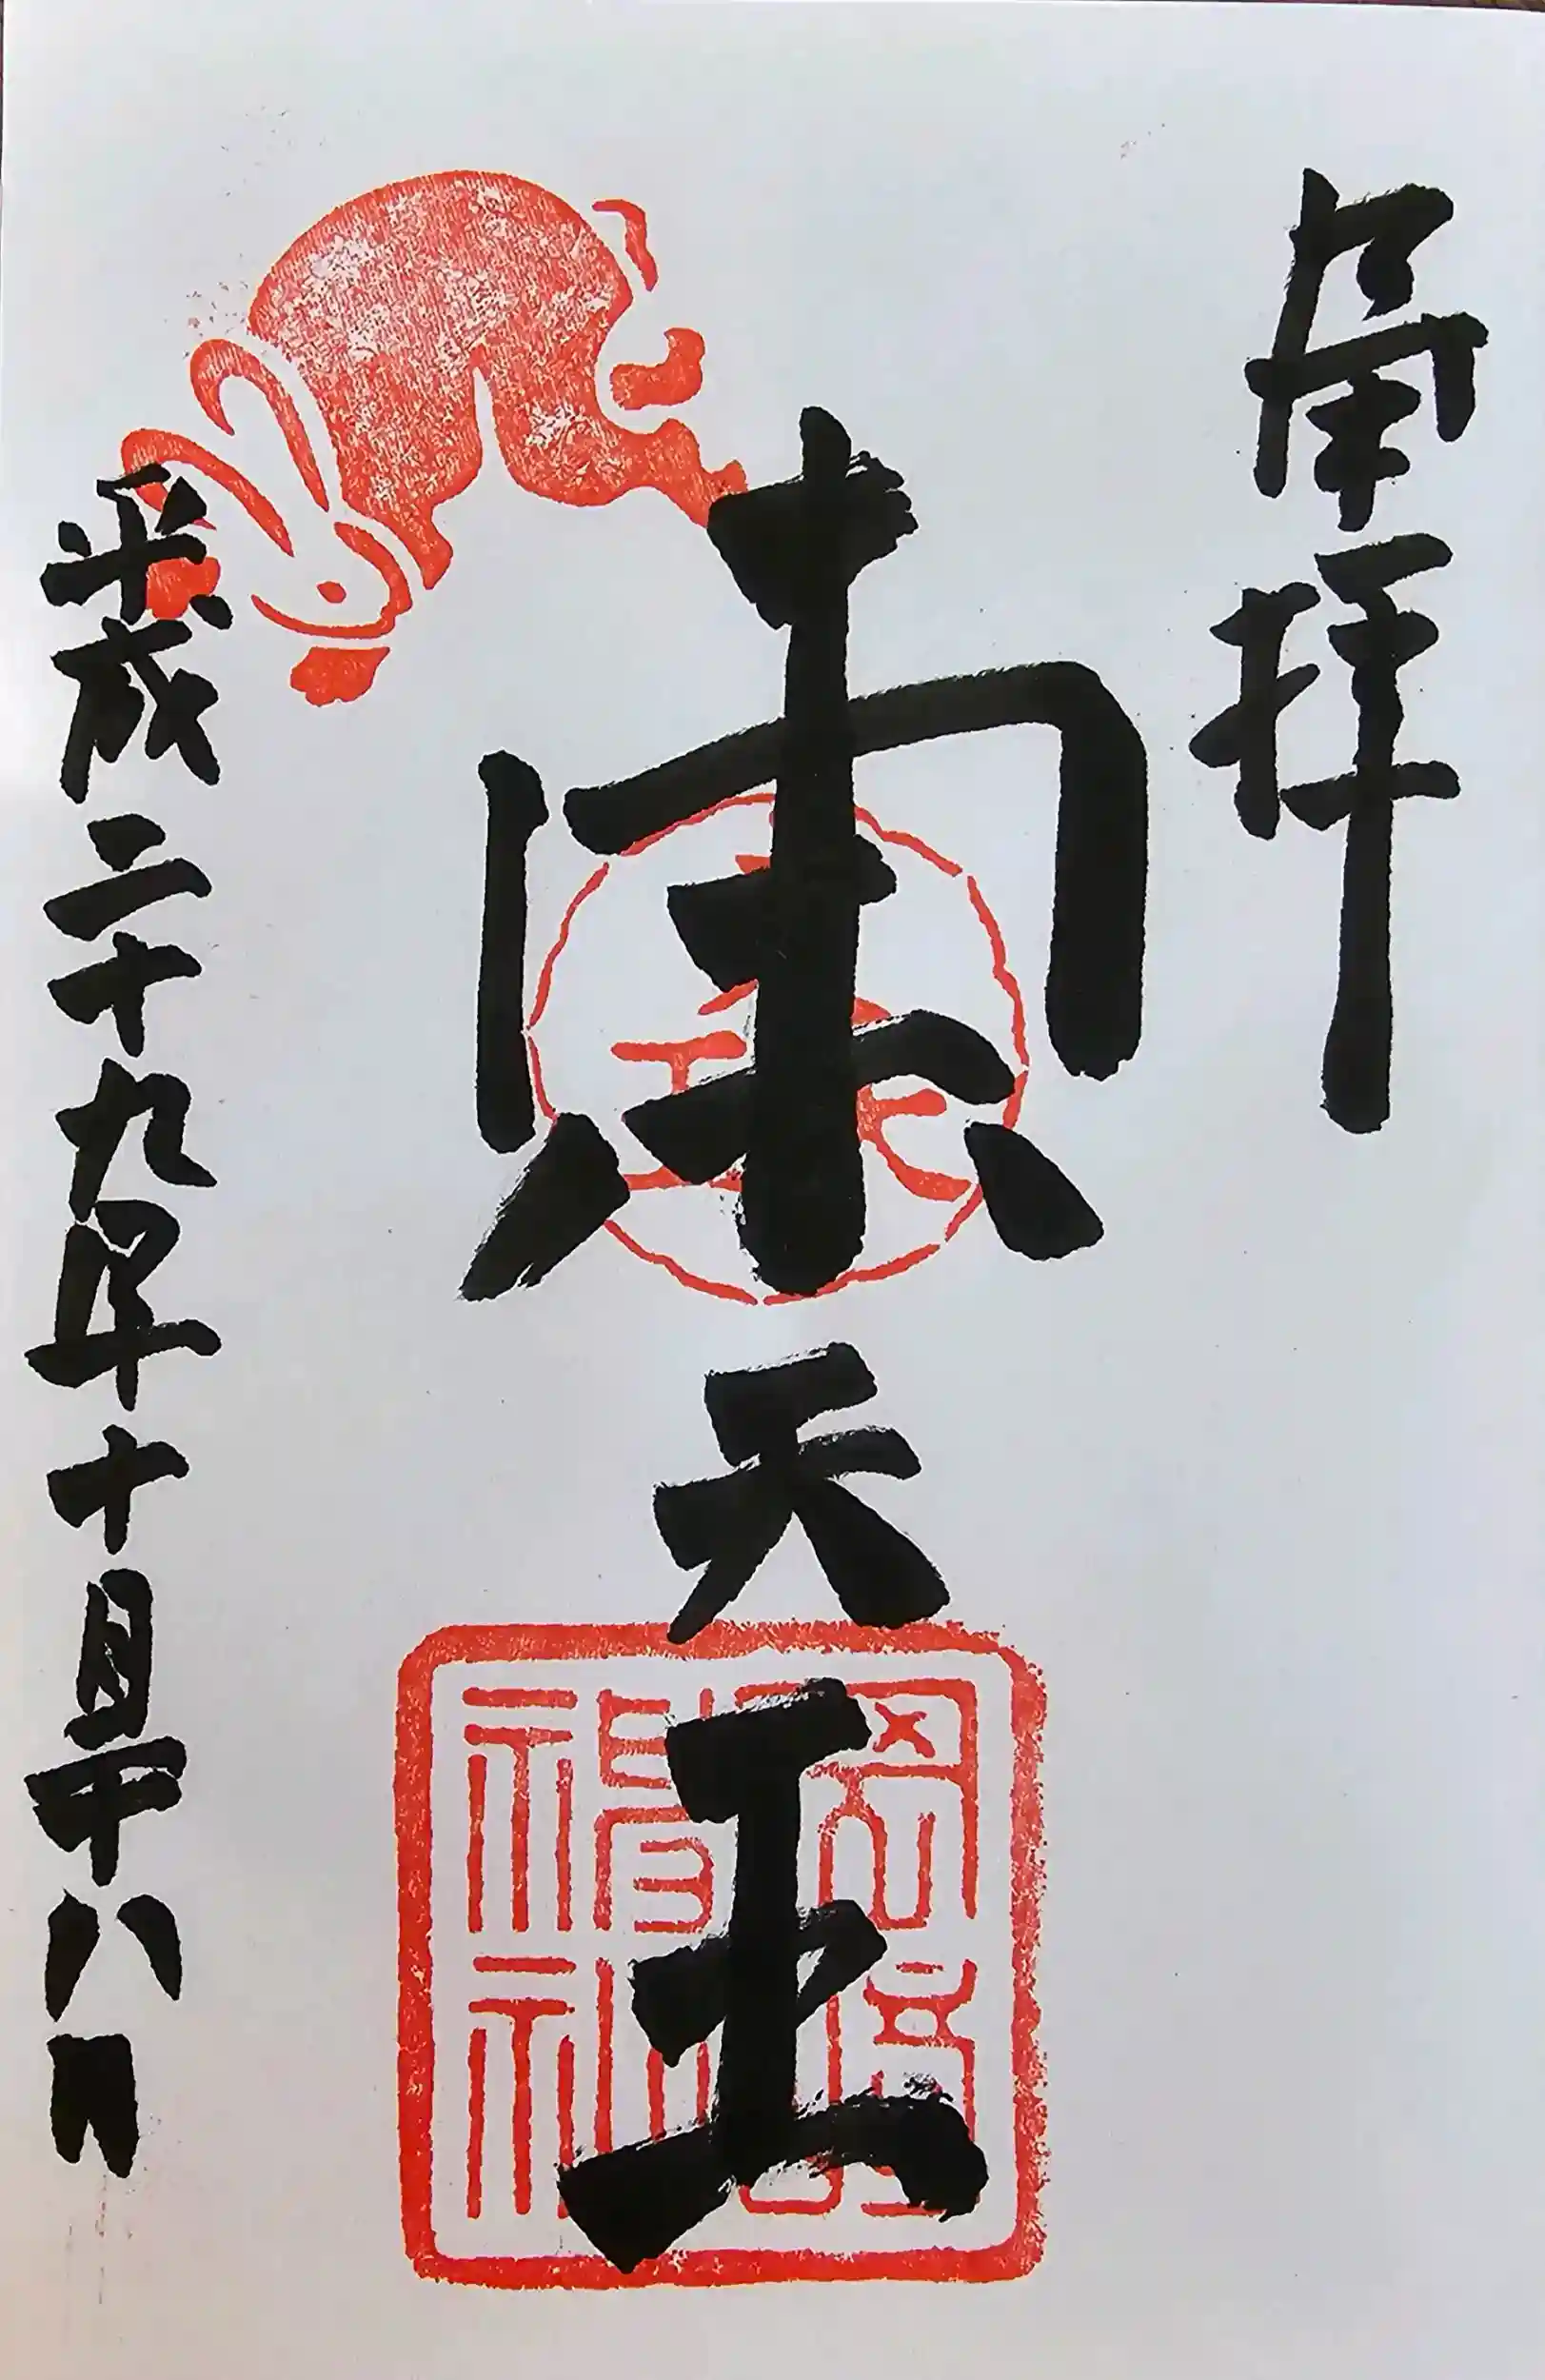 拝
東天王
平成二十九年十月二十八日
岡崎神社